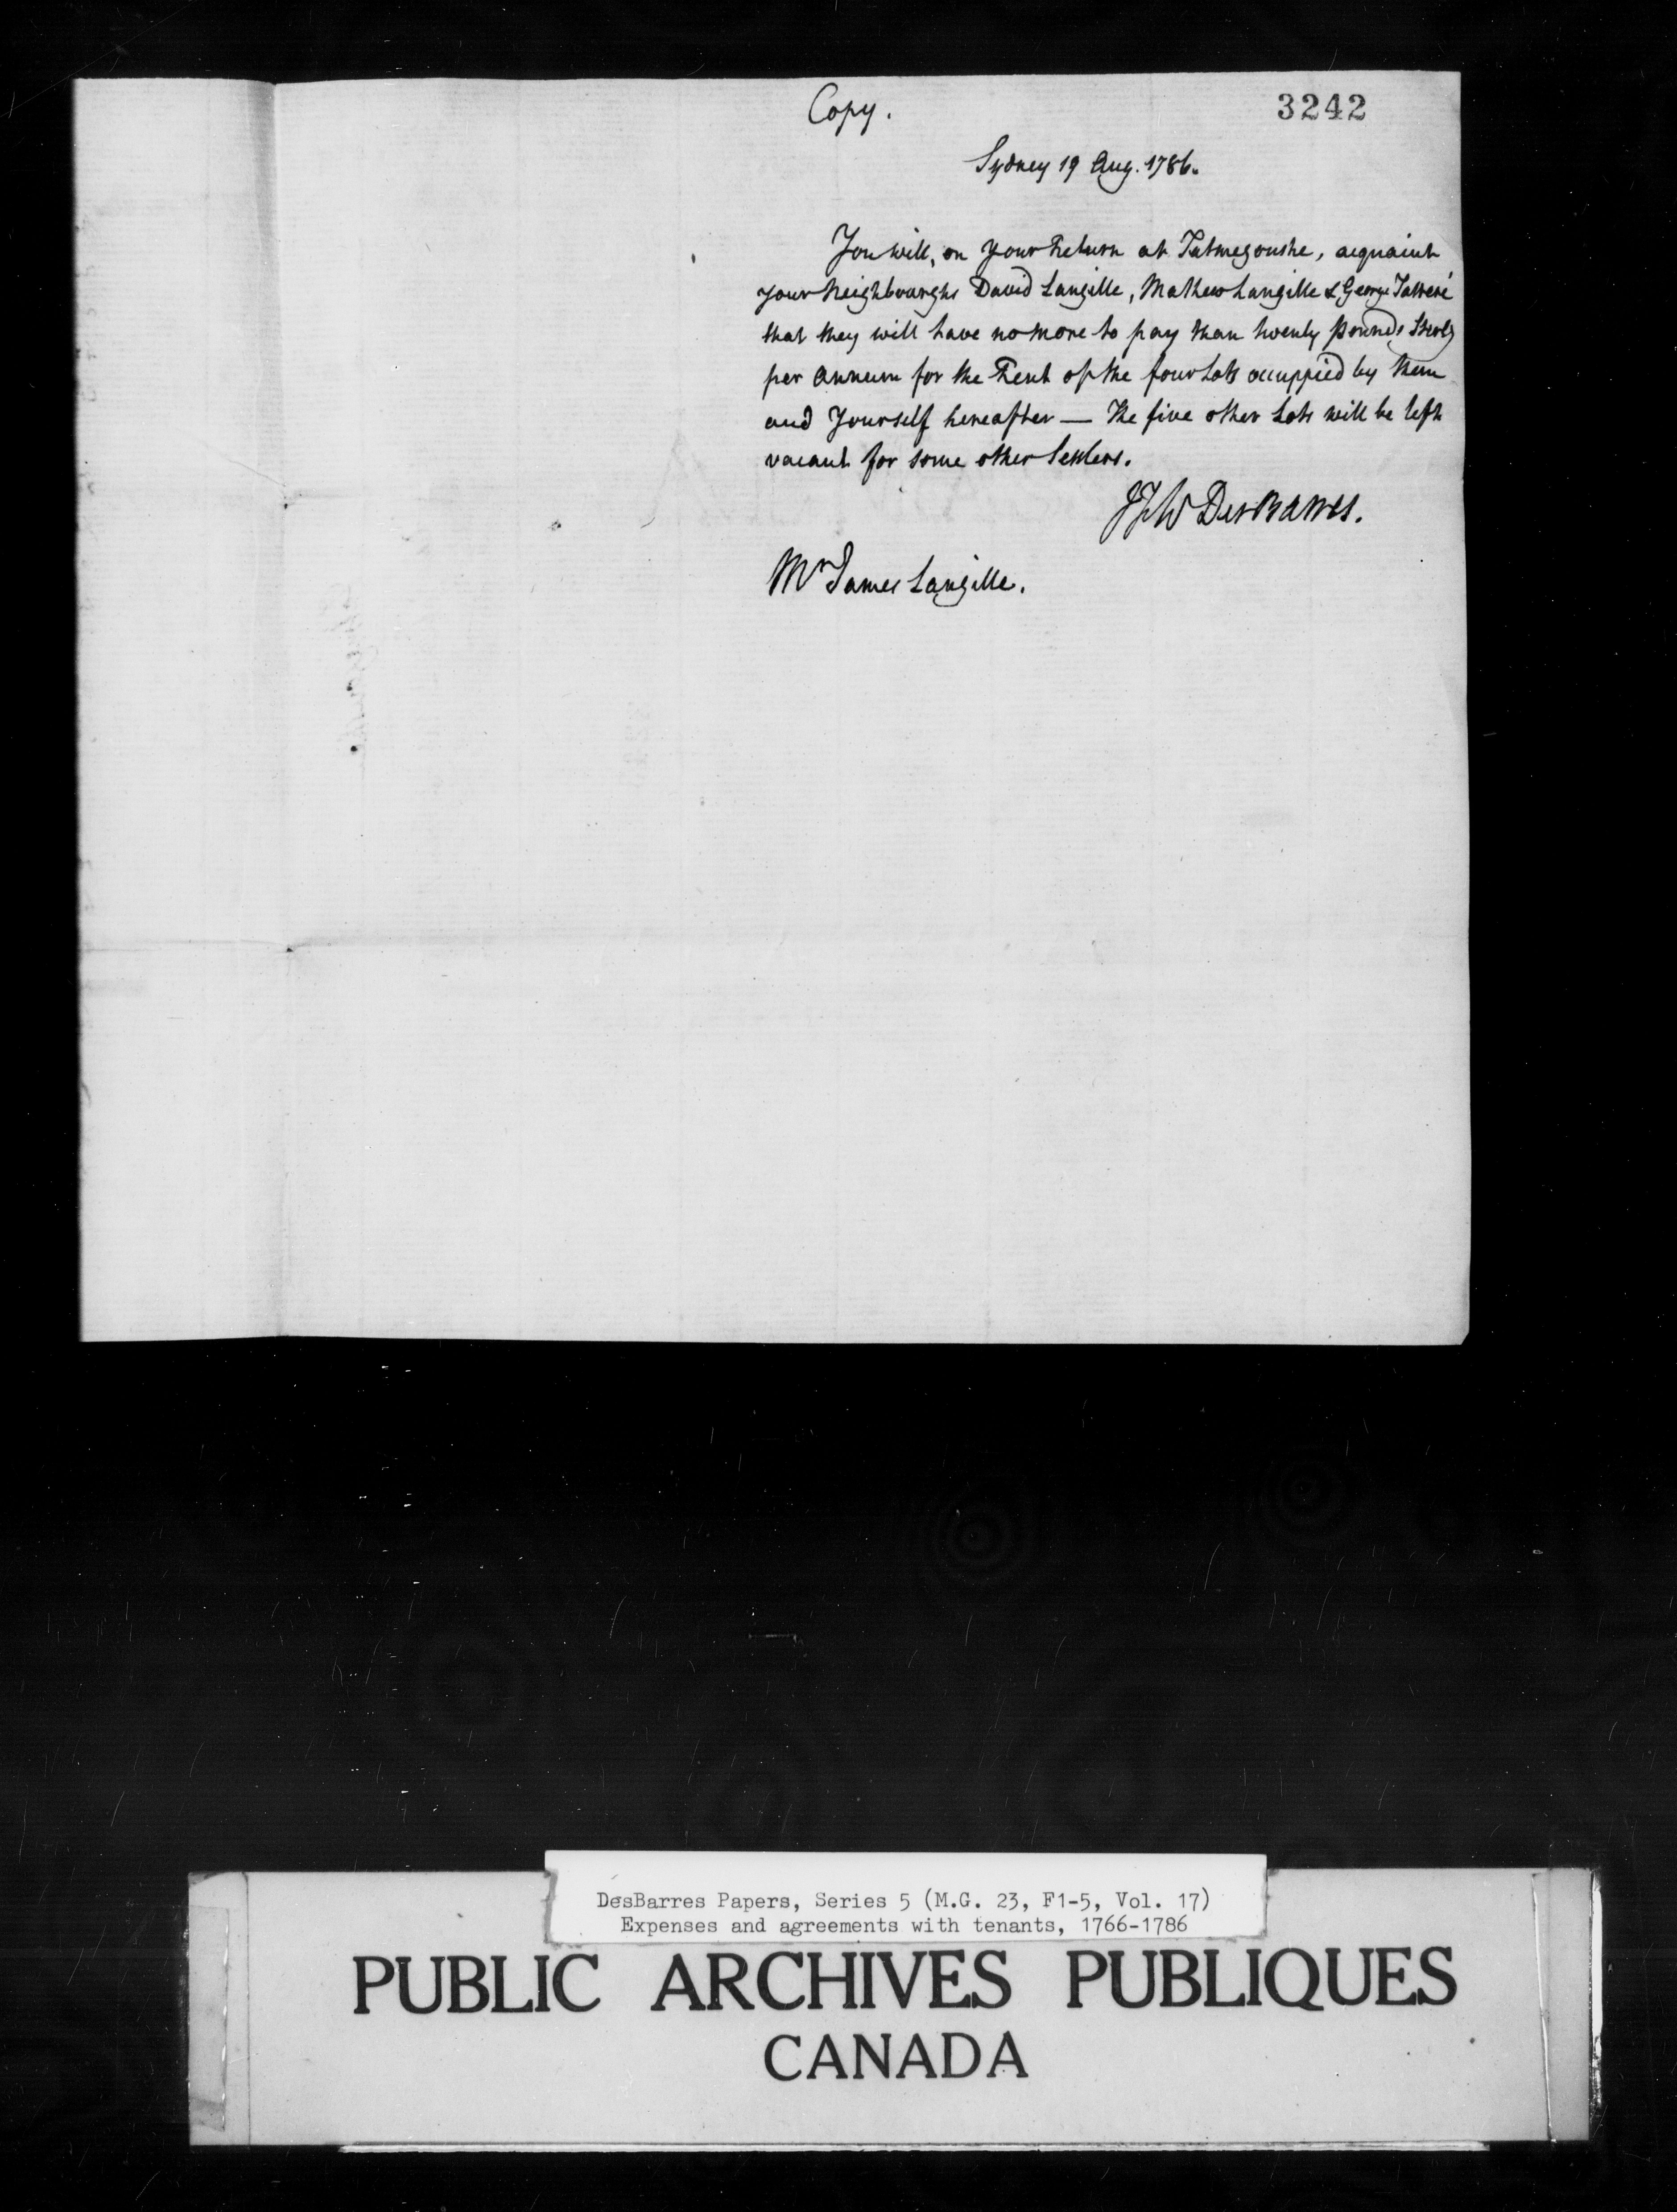 Copy.
3242
Sydney 19 Aug. 1786.
You will, on your Return at Tatmegoushe, acquaint
your Neighbourghs David Langille, Mathew Langille & George Tattrié
that they will have no more to pay than twenty pounds Sterlg
per Annum for the Rent of the four Lots occuppied by them
and Yourself hereafter — The five other Lots will be left
vacant for some other Settlers.
JFW DesBarres.
Mr James Langille.
DesBarres Papers, Series 5 (M.G. 23, F1-5, Vol. 17)
Expenses and agreements with tenants, 1766-1786
PUBLIC ARCHIVES PUBLIQUES
CANADA